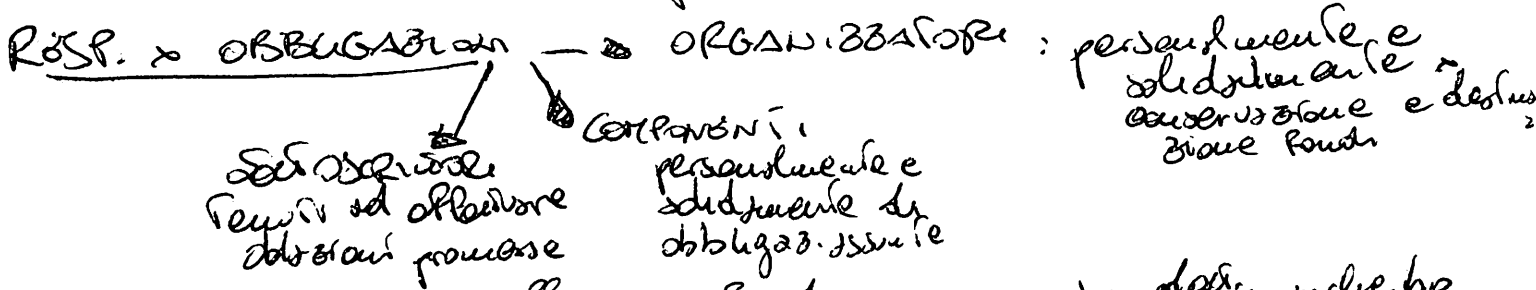 RESP. x OBBLIGAZIONI → ORGANIZZATORI : personalmente e
solidalmente x
conservazione e destina
zione fondi
COMPONENTI
personalmente e
solidalmente di
obbligaz. assunte
SOTTOSCRITTORI
tenuti ad effettuare
oblazioni promesse